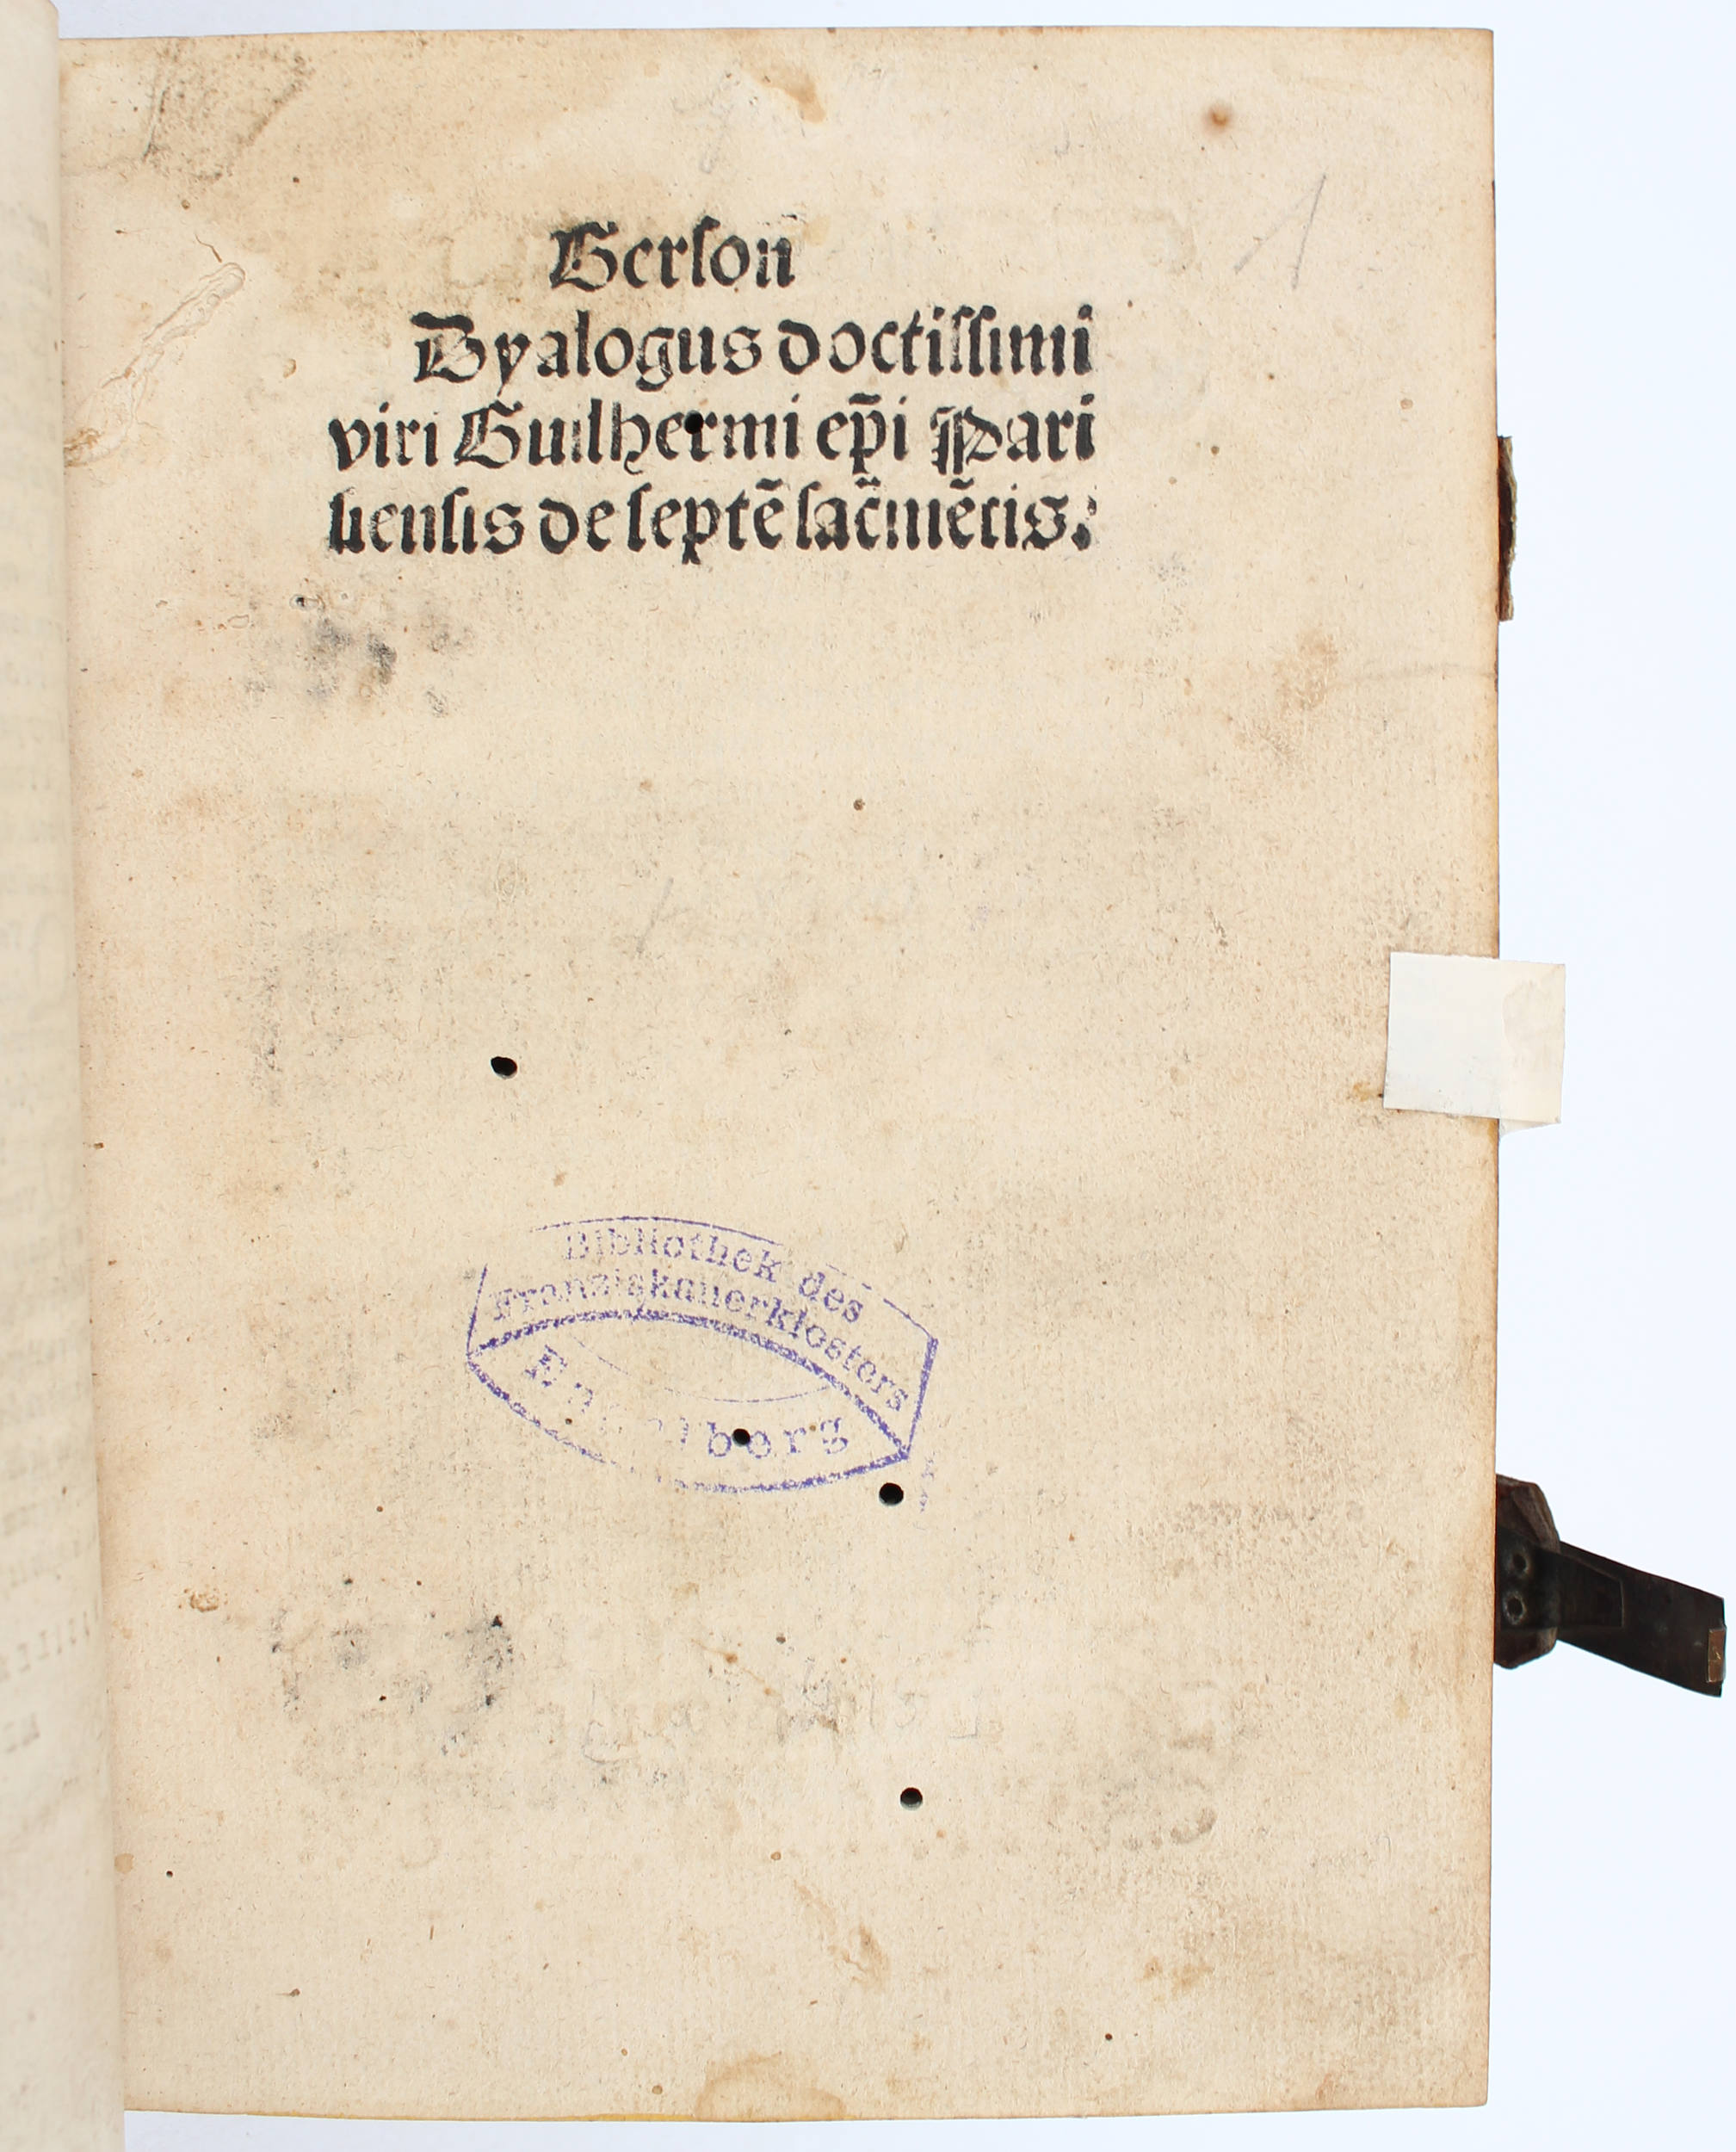 Gerſon
Dyalogus doctiſſimi
viri Guilhermi ep̄i Pari
ſienſis de ſeptē ſac̄mētis.
1
Bibliothek des
Franziskanerklosters
Engelberg